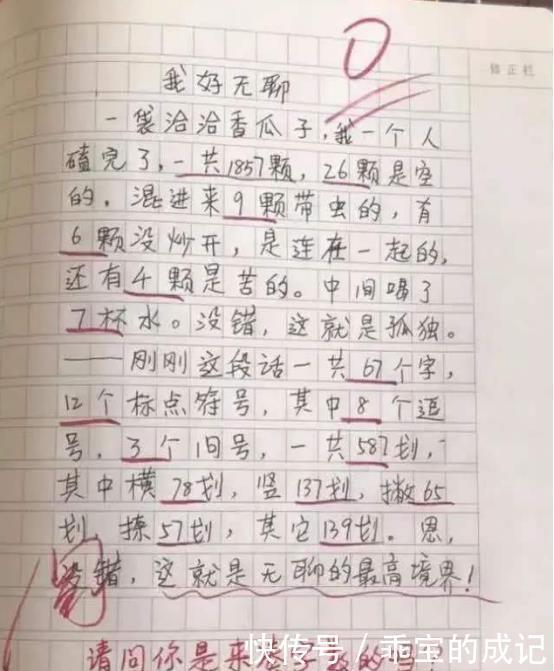 0
修正栏
我好无聊
一袋洽洽香瓜子，我一个人
磕完了，一共1857颗，26颗是空
的，混进来9颗带虫的，有
6颗没炒开，是连在一起的，
还有4颗是苦的。中间喝了
7杯水。没错，这就是孤独。
——刚刚这段话一共67个字，
12个标点符号，其中8个逗
号，3个旧号，一共587划，
其中横78划，竖137划，撇65
划，捺57划，其它139划。恩，
没错，这就是无聊的最高境界！
请问你是来
快传号 / 乖宝的成记